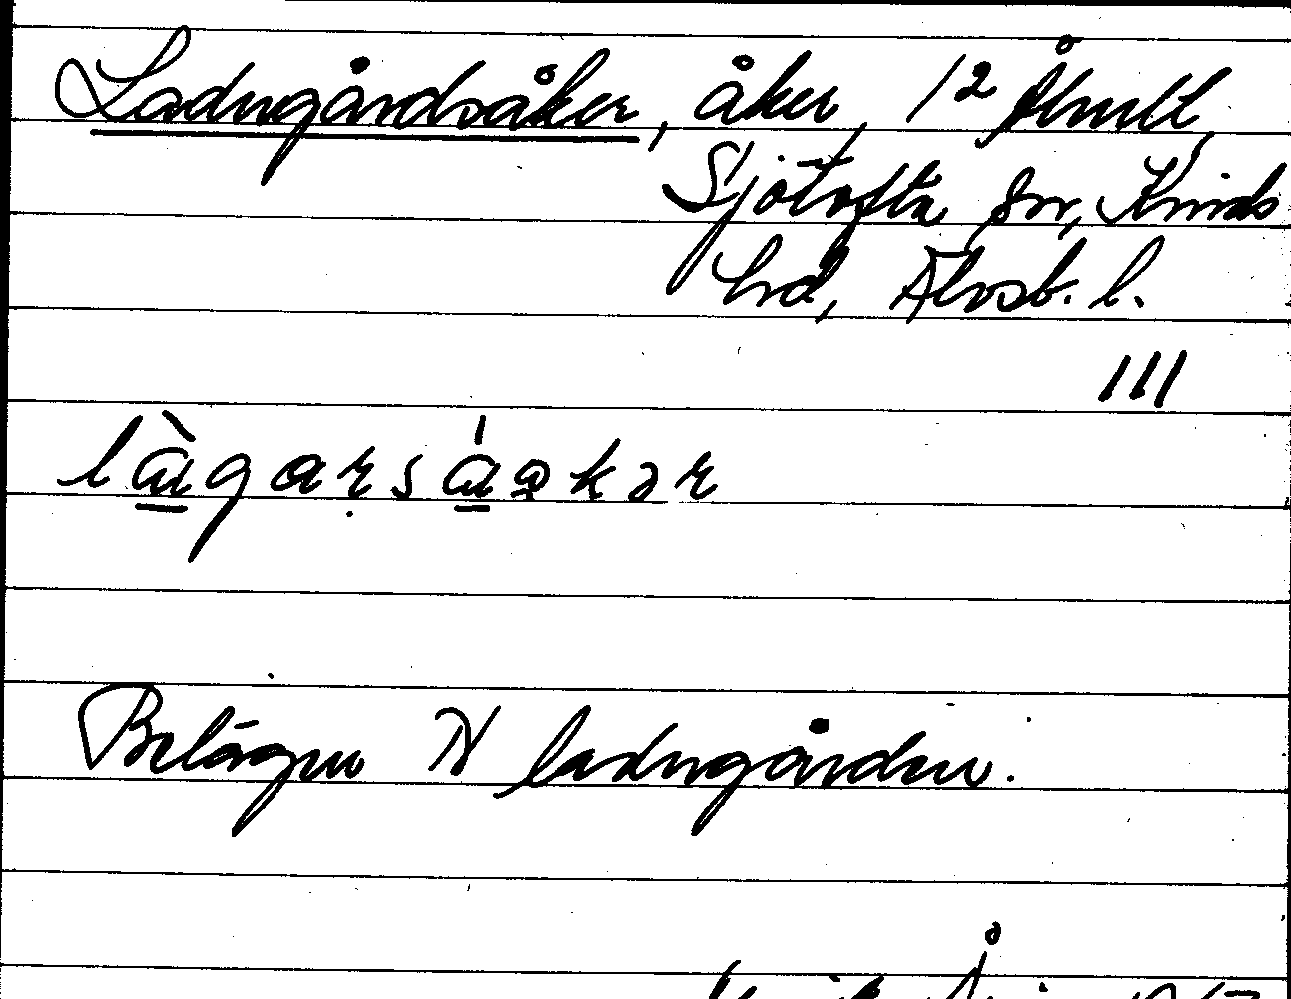 Ladugårdsåker, åker, 1² Åhult,
Sjötofta sn, Kinds
hd, Älvsb. l.
111
lὰgaṛsά̲ɷkər
Belägen N ladugården.